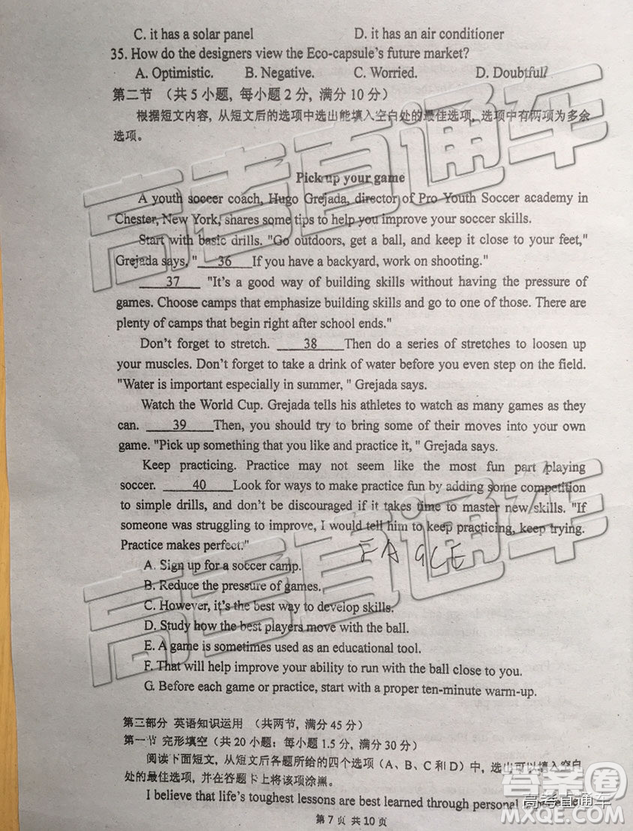 C. it has a solar panel D. it has an air conditioner
35. How do the designers view the Eco-capsule's future market?
A. Optimistic. B. Negative. C. Worried. D. Doubtful?
第二节 （共 5 小题, 每小题 2 分, 满分 10 分）
根据短文内容, 从短文后的选项中选出能填入空白处的最佳选项, 选项中有两项为多余
选项。
Pick up your game
A youth soccer coach, Hugo Grejada, director of Pro Youth Soccer academy in
Chester, New York, shares some tips to help you improve your soccer skills.
Start with basic drills. "Go outdoors, get a ball, and keep it close to your feet,"
Grejada says, " 36 If you have a backyard, work on shooting."
37 "It's a good way of building skills without having the pressure of
games. Choose camps that emphasize building skills and go to one of those. There are
plenty of camps that begin right after school ends."
Don't forget to stretch. 38 Then do a series of stretches to loosen up
your muscles. Don't forget to take a drink of water before you even step on the field.
"Water is important especially in summer, " Grejada says.
Watch the World Cup. Grejada tells his athletes to watch as many games as they
can. 39 Then, you should try to bring some of their moves into your own
game. "Pick up something that you like and practice it, " Grejada says.
Keep practicing. Practice may not seem like the most fun part playing
soccer. 40 Look for ways to make practice fun by adding some competition
to simple drills, and don't be discouraged if it takes time to master new skills. "If
someone was struggling to improve, I would tell him to keep practicing, keep trying.
Practice makes perfect."
A. Sign up for a soccer camp.
B. Reduce the pressure of games.
C. However, it's the best way to develop skills.
D. Study how the best players move with the ball.
E. A game is sometimes used as an educational tool.
F. That will help improve your ability to run with the ball close to you.
G. Before each game or practice, start with a proper ten-minute warm-up.
第三部分 英语知识运用 （共两节, 满分 45 分）
第一节 完形填空（共 20 小题；每小题 1.5 分, 满分 30 分）
阅读下面短文, 从短文后各题所给的四个选项（A、B、C 和 D）中, 选出可以填入空白
处的最佳选项, 并在答题卡上将该项涂黑。
I believe that life's toughest lessons are best learned through personal
第 7 页 共 10 页
高考直通车
答案圈
MXQE.COM
高考直通车